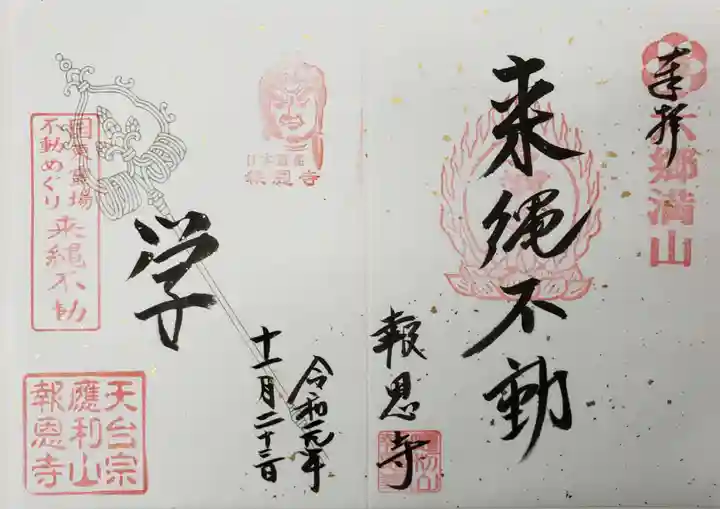 奉拝
六郷満山
来縄不動
報恩寺
令和元年
十一月二十三日
学
日本霊場
報恩寺
国東霊場
不動めぐり
来縄不動
天台宗
應利山
報恩寺